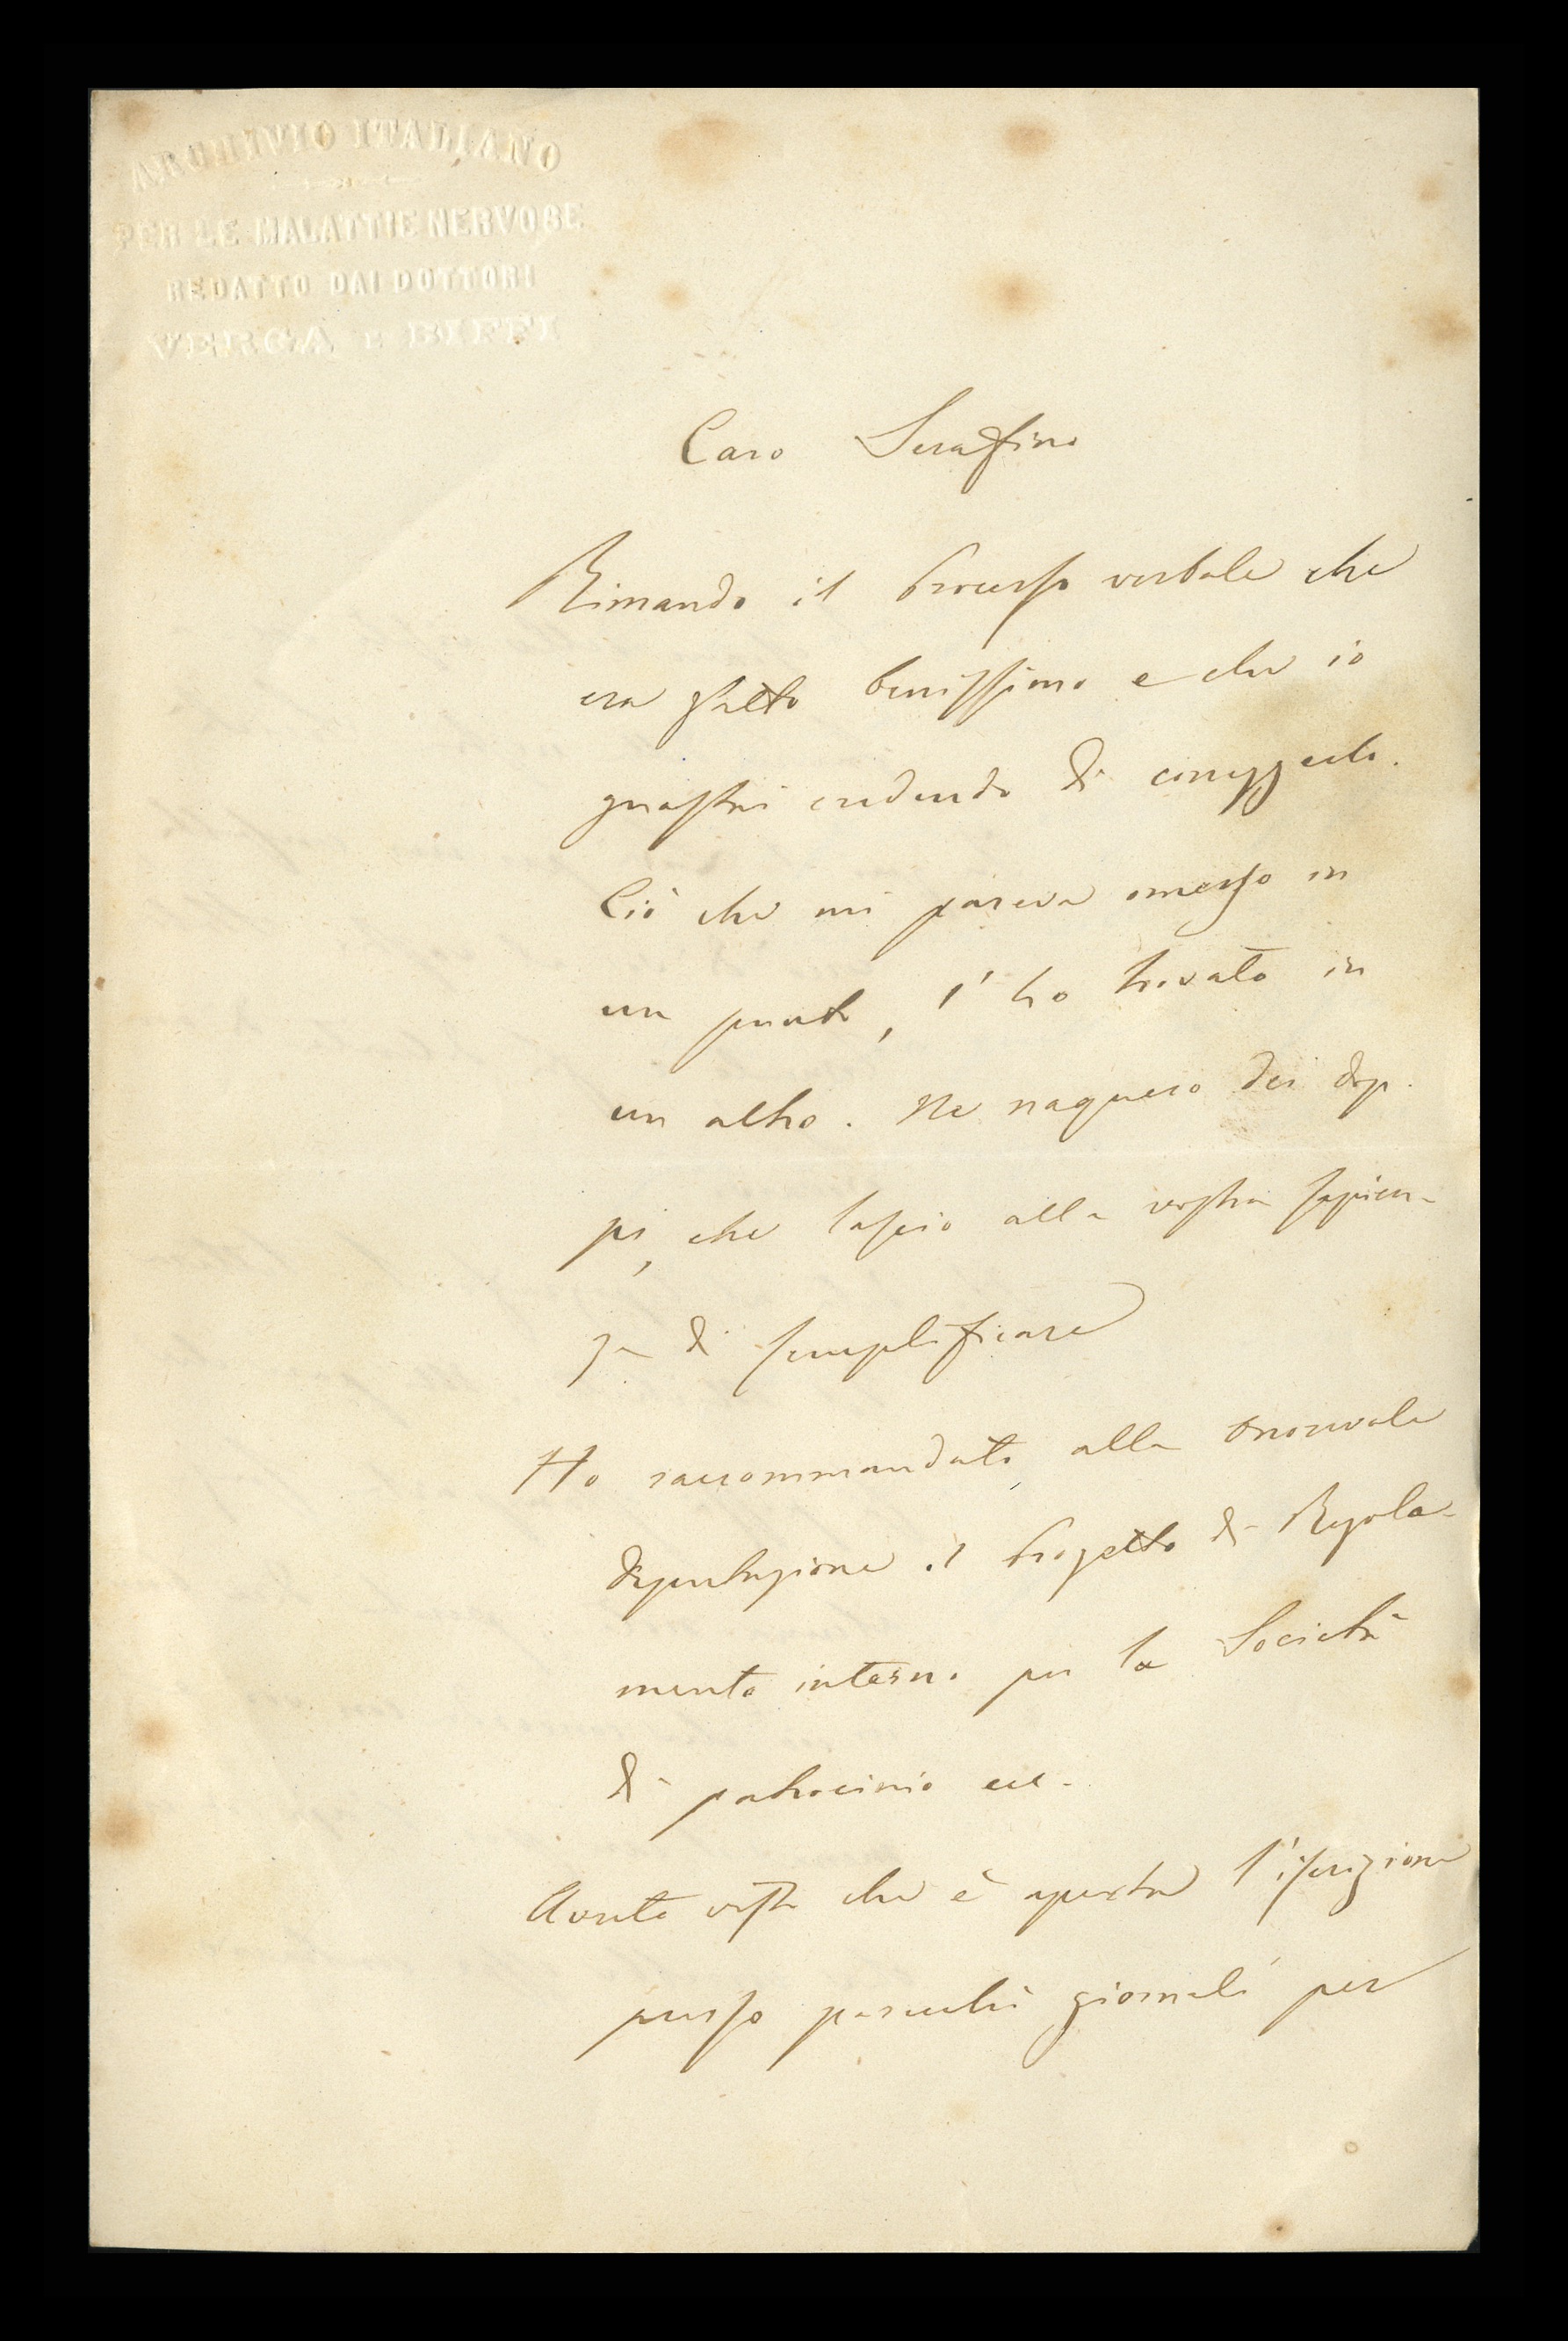 ARCHIVIO ITALIANO
PER LE MALATTIE NERVOSE
REDATTO DAI DOTTORI
VERGA E BIFFI
Caro Serafino
Rimando il processo verbale che
era fatto benissimo e che io
guastai credendo di correggerlo.
Ciò che mi pareva omesso in
un punto, l'ho trovato in
un altro. Ne naquero dei dop-
pi, che lascio alla vostra sapien-
za di semplificare
Ho raccommandato alla onorevole
deputazione il progetto di Regola-
mento interno per la Società
di patrocinio ecc.
Avrete visto che è aperta l'iscrizione
presso parecchi giornali per